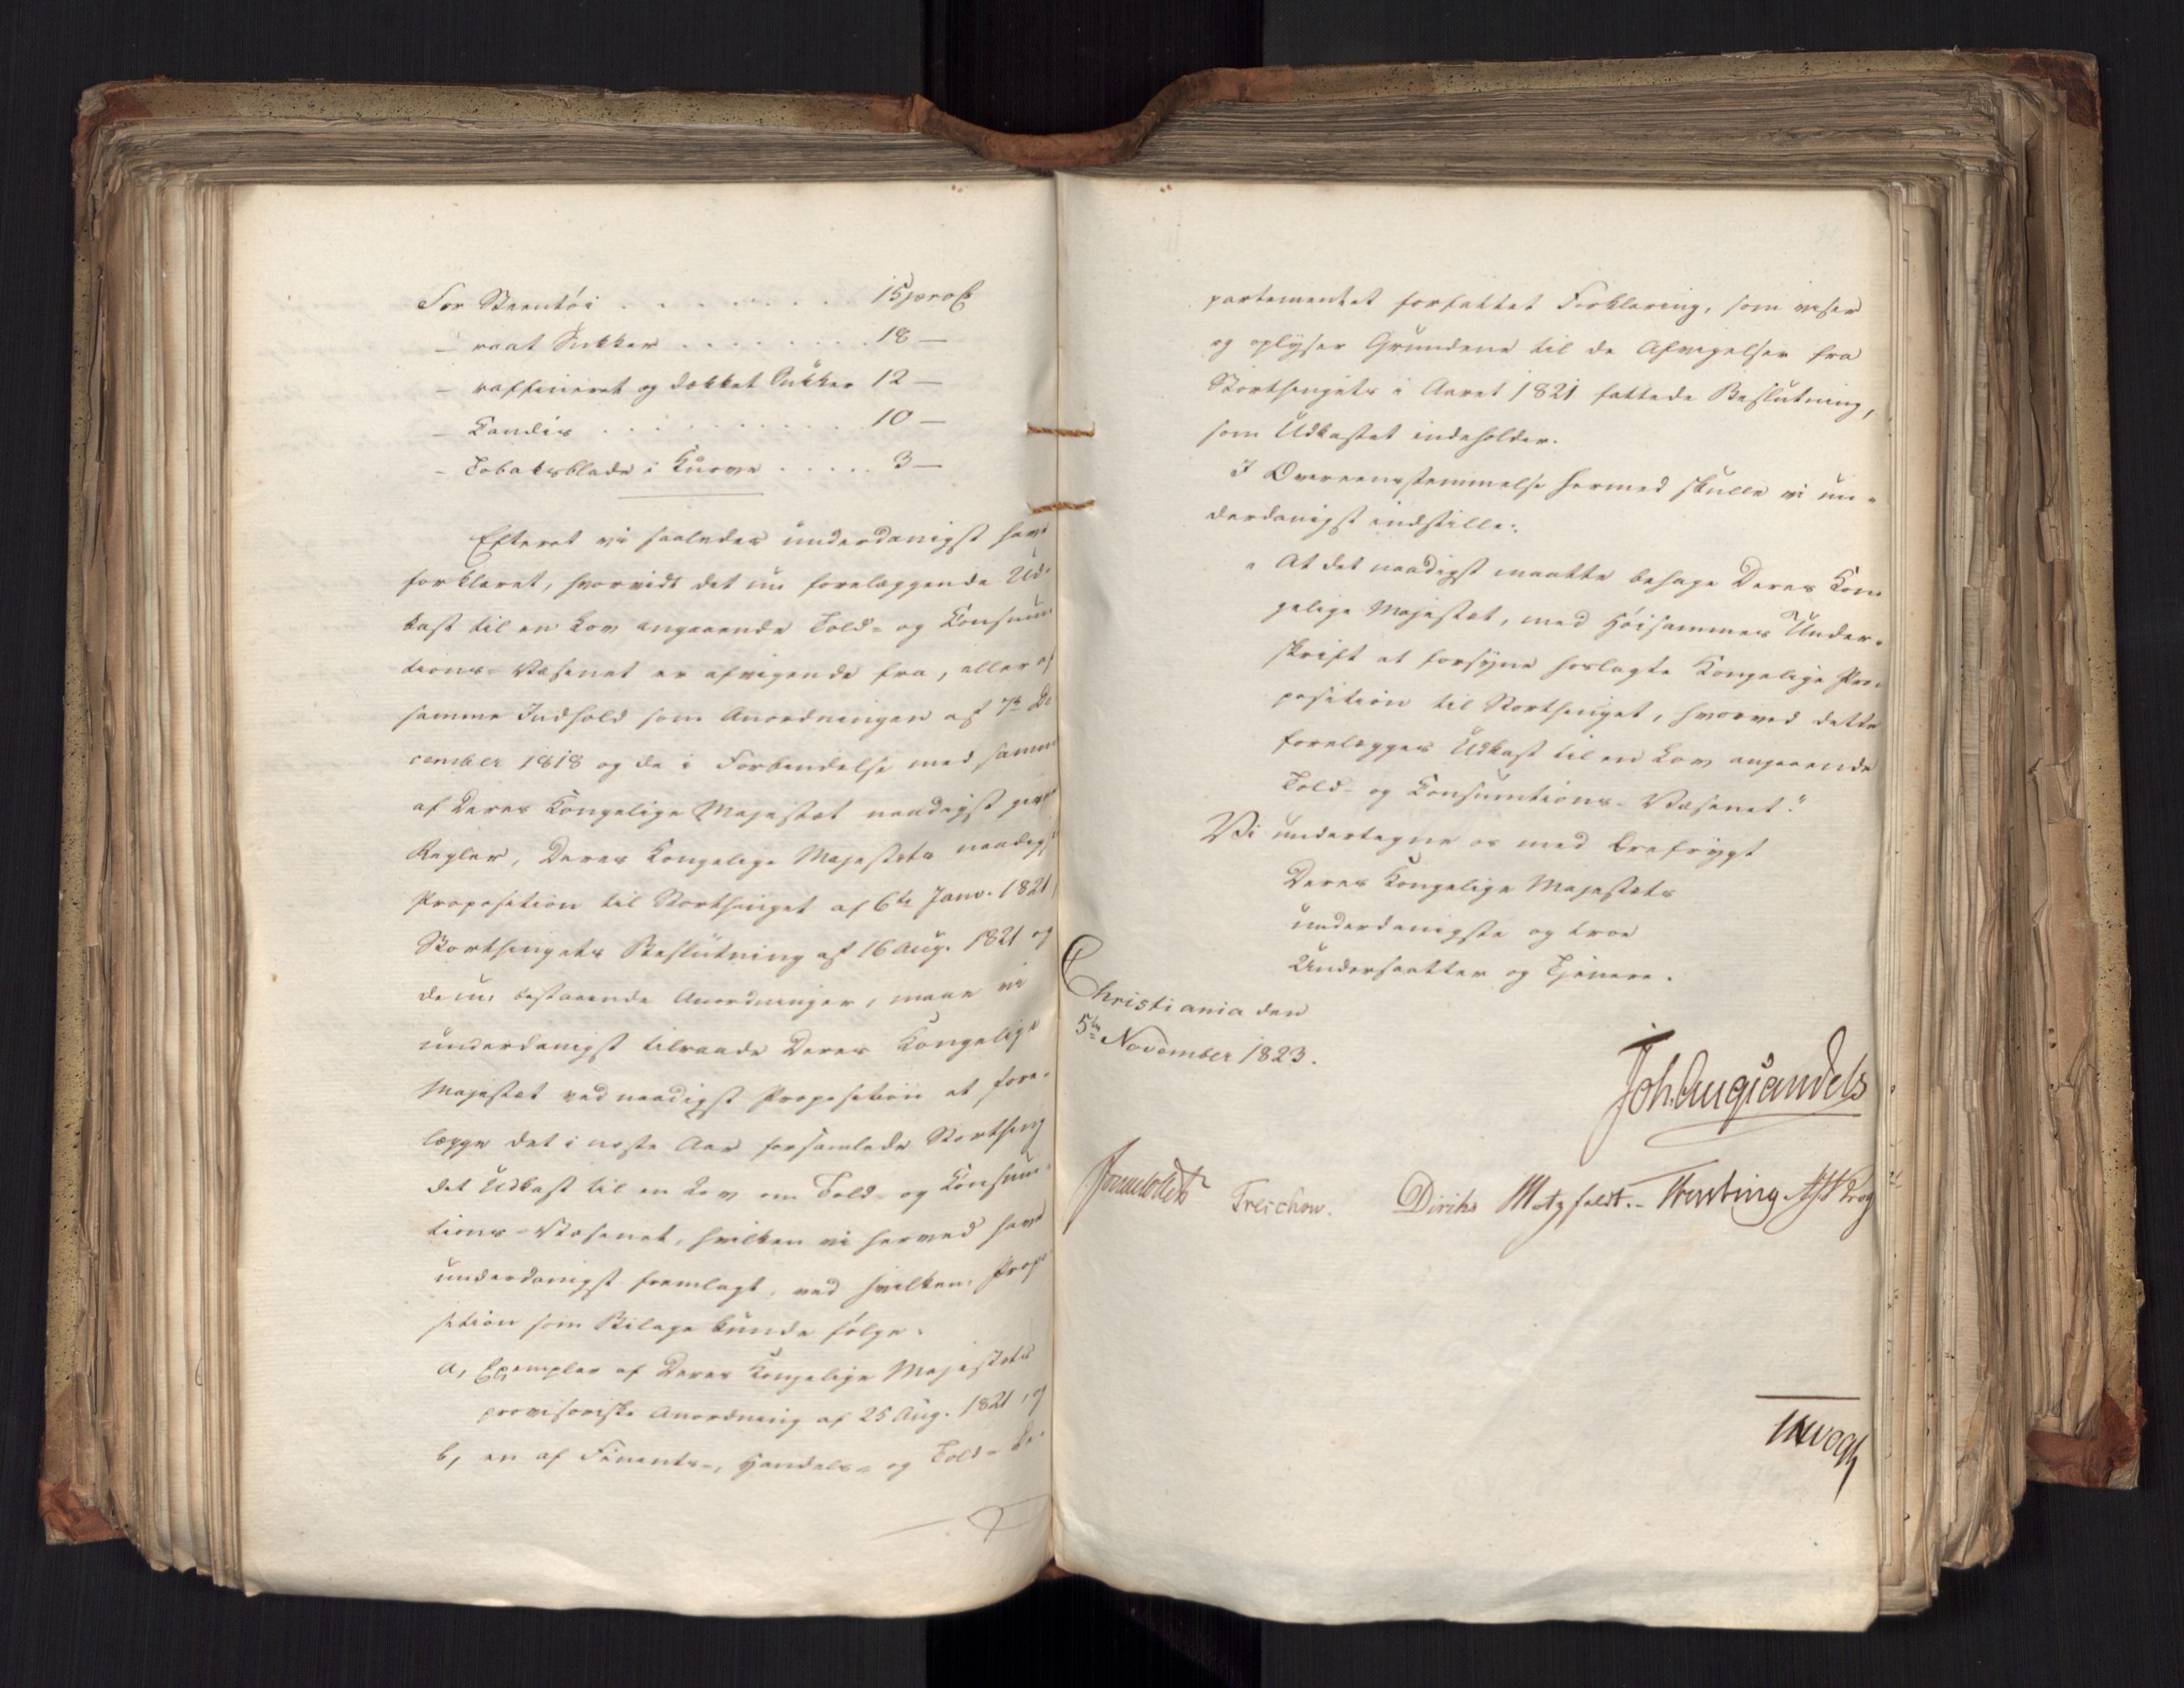 For Steentöi . . . . . . . . . 15 proC
– raat Sukker . . . . . . . . 18 –
– raffineret og dækket Sukker 12 –
– Kandis . . . . . . . . . . . 10 –
– Tobaksblade i Kurve . . . . . 3 –
Efterat vi saaledes underdanigst have
forklaret, hvorvidt det nu forelæggende Ud-
kast til en Lov angaaende Told- og Consum
tions-Væsenet er afvigende fra, eller af
samme Indhold som Anordningen af 7de De
cember 1818 og de i Forbindelse med samme
af Deres Kongelige Majestæt naadigst givne
Regler, Deres Kongelige Majestæts naadigste
Proposition til Storthinget af 6te Janv. 1821,
Storthingets Beslutning af 16 Aug. 1821 og
de nu bestaaende Anordninger, maae vi
underdanigst tilraade Deres Kongelige
Majestæt ved naadigst Proposition at fore-
lægge det i næste Aar forsamlede Storthing
det Udkast til en Lov om Told- og Consum-
tions-Væsenet, hvilken vi herved have
underdanigst fremlagt, ved hvilken Propo
sition som Bilage kunde følge:
a, Exemplar af Deres Kongelige Majestæts
provisoriske Anordning af 25 Aug. 1821, og
b, en af Finants-, Handels- og Told-De-
partementet forfattet Forklaring, som viser
og oplyser Grundene til de Afvigelser fra
Storthingets i Aaret 1821 fattede Beslutning,
som Udkastet indeholder.
I Overeensstemmelse hermed skulle vi un-
derdanigst indstille:
"At det naadigst maatte behage Deres Kon
gelige Majestæt, med Höisammes Under-
skrift at forsyne hoslagte Kongelige Pro-
position til Storthinget, hvorved dette
forelægges Udkast til en Lov angaaende
Told- og Consumtions-Væsenet."
Vi undertegne os med Ærefrygt
Deres Kongelige Majestæts
underdanigste og troe
Undersaatter og Tjenere.
Christiania den
5te November 1823.
Joh. Aug. Sandels
Sommerhielm Treschow. Diriks Motzfeldt. Krog
Vogt